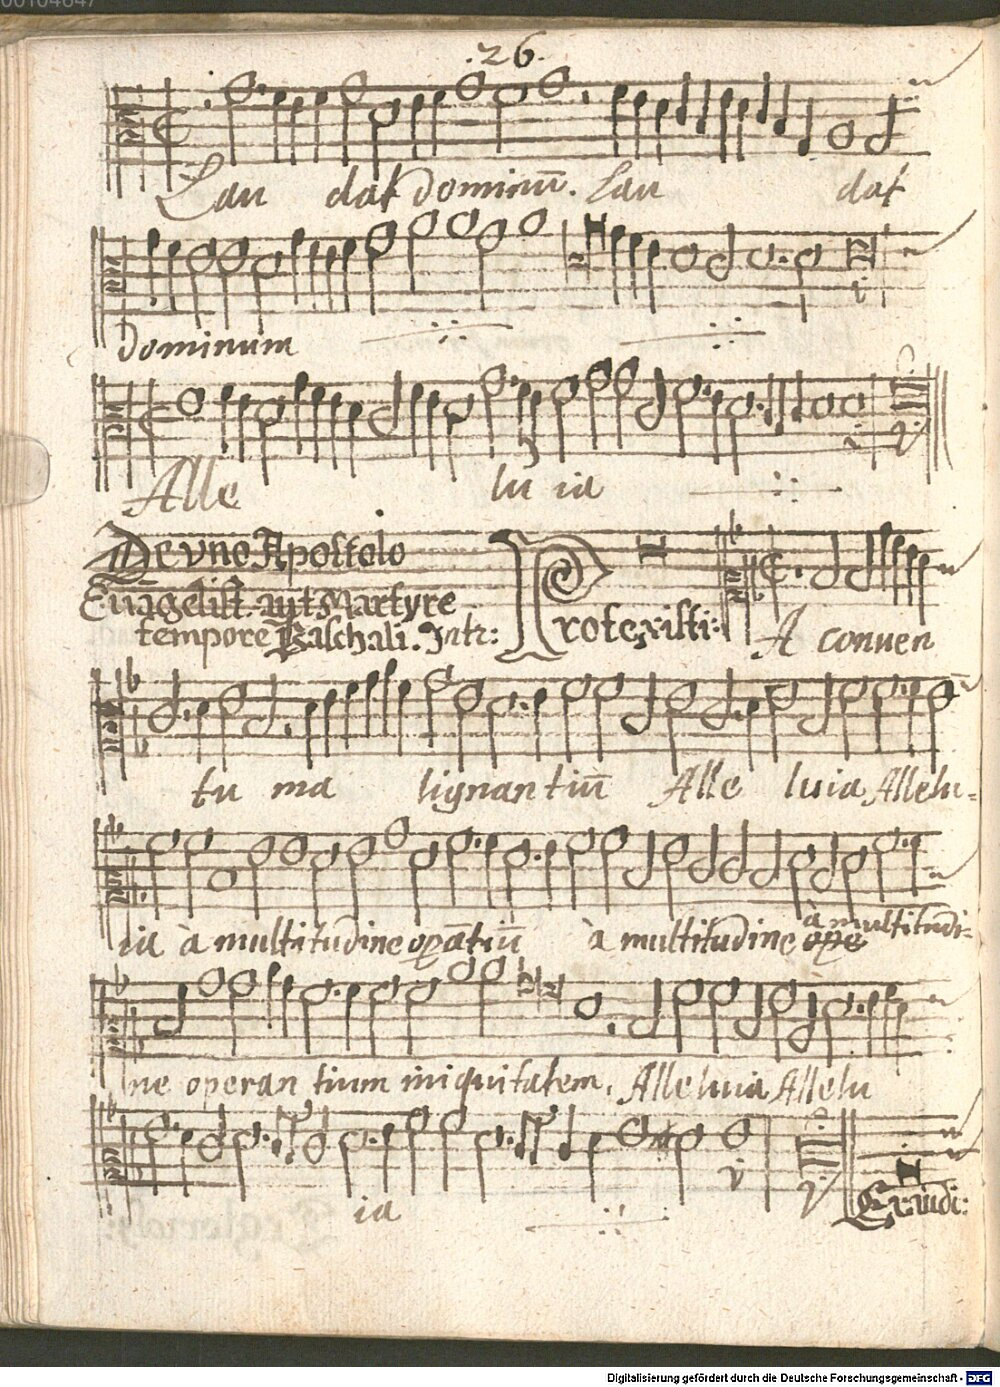 00104647
.26.
Lau dat dominū. Lau dat
dominum
Alle lu ia
De vno Apostolo
Euāgelist. aut Martyre
tempore Paschali. Intr:
Protexisti:
A conuen
tu ma lignan tiū Alle luia Allelu-
ia à multitudine opātiū à multitudine ope à multitudi-
ne operan tium iniquitatem. Alleluuia Allelu
ia
Exaudi:
Digitalisierung gefördert durch die Deutsche Forschungsgemeinschaft - DFG